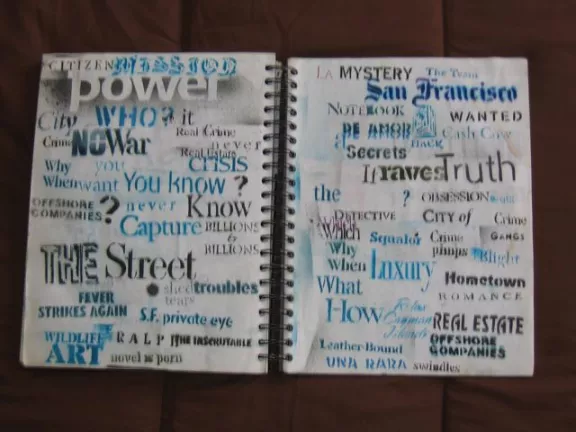 CITIZEN MISSION
power
City WHO? it
Crime NO War Real Crime never
Real Estate
Why you crisis
When want You know ?
OFFSHORE COMPANIES ? never Know
Capture BILLIONS & BILLIONS
THE Street
shed troubles
tears
FEVER
STRIKES AGAIN S.F. private eye
WILDLIFE RALPH THE INSCRUTABLE
ART novel as porn
LA MYSTERY The Team
San Francisco
NOTEBOOK WANTED
DE AMOR Cash Cow
HACK
Secrets
It raves Truth
the ? OBSESSION
DETECTIVE CITY of Crime
Which
Squalor Crime GANGS
Why pimps Blight
When Luxury
What Hometown
ROMANCE
How
Islands REAL ESTATE
OFFSHORE
Leather-Bound COMPANIES
UNA RARA swindles